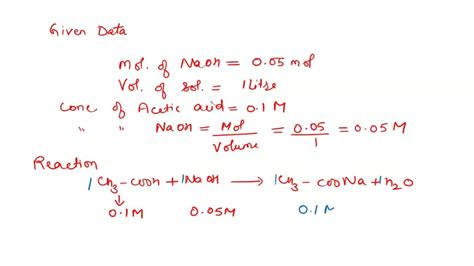 Given Data
Mol. of NaOH = 0.05 mol
Vol. of sol. = 1 Litre
Conc of Acetic acid = 0.1 M
" " NaOH = Mol / Volume = 0.05 / 1 = 0.05 M
Reaction
1CH3-COOH + 1NaOH → 1CH3-COONa + 1H2O
↓
0.1M 0.05M 0.1